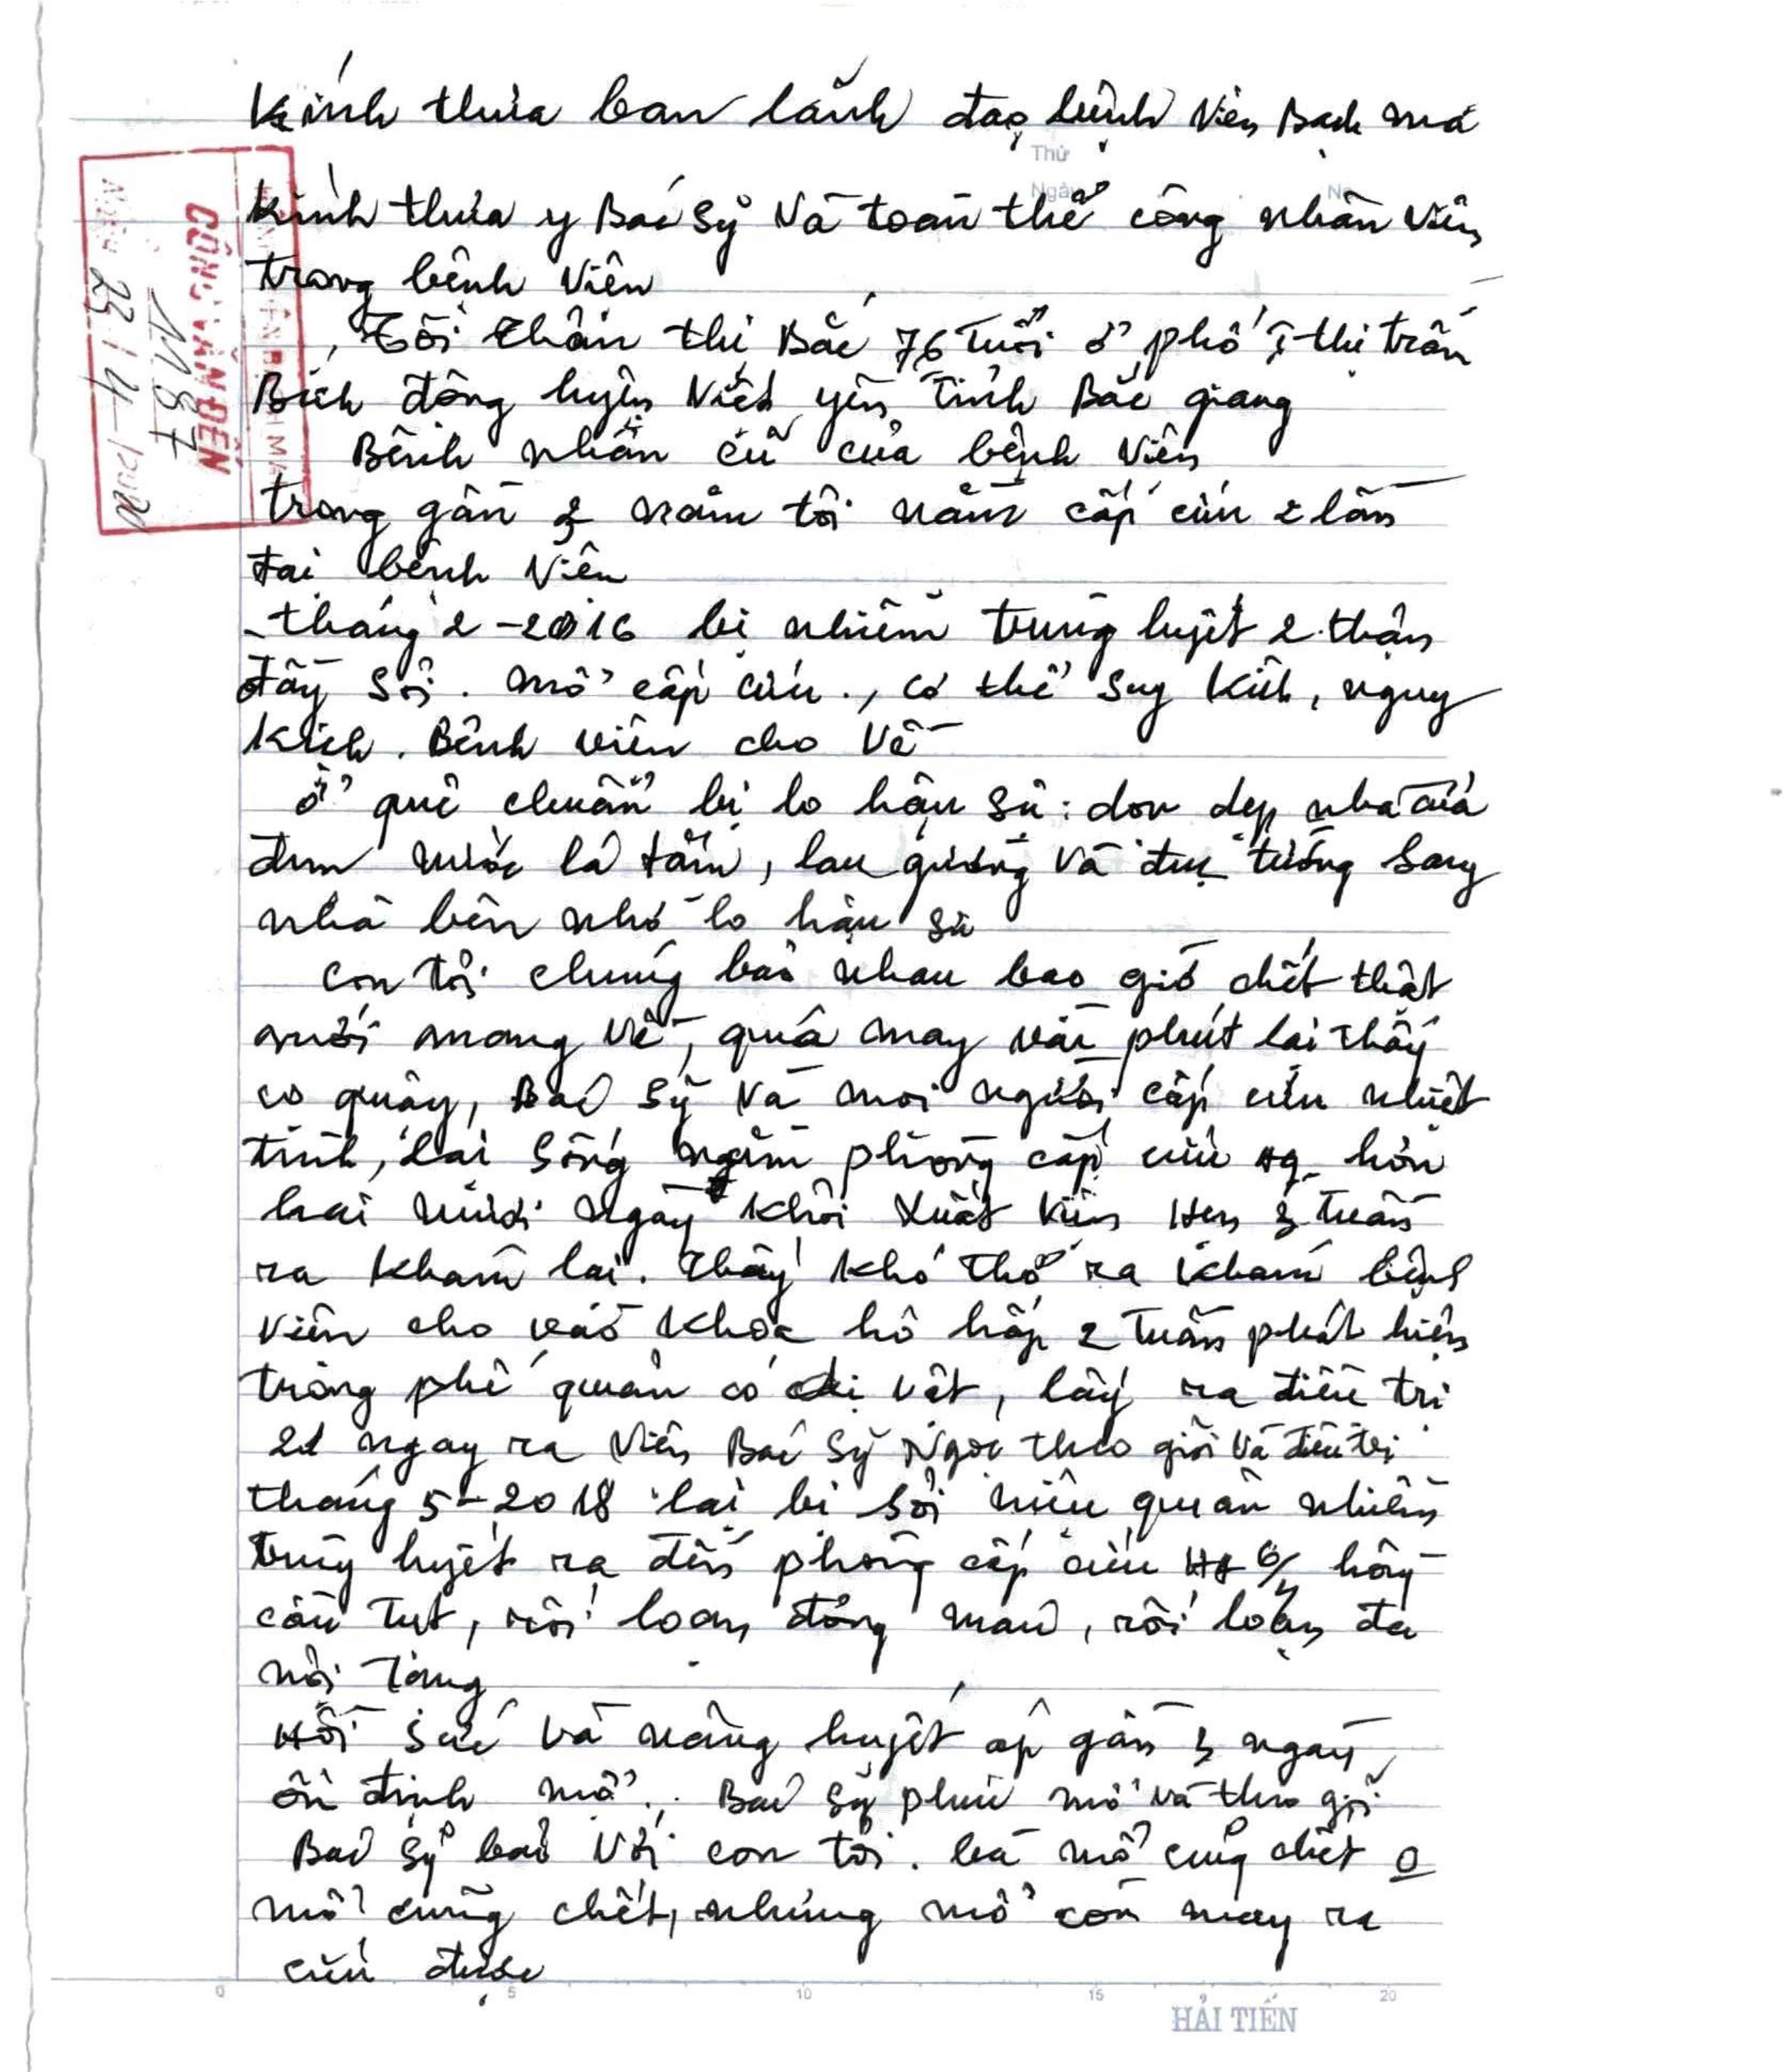 Kính thưa ban lãnh đạo bệnh viện Bạch mai
Thứ
Ngày No
Kính thưa y Bác Sỹ Và toàn thể công nhân viên
trong bệnh Viện
Tôi thân thị Bắc 76 tuổi ở phố thị trấn
Bích động huyện Việt yên Tỉnh Bắc giang
Bệnh nhân cũ của bệnh Viện
trong gần 3 năm tôi nằm cấp cứu 2 lần
tại bệnh Viện
- tháng 2 - 2016 bị nhiễm trùng huyết 2 thận
đầy sỏi. mổ cấp cứu., cơ thể suy kiệt, nguy
kịch. Bệnh viện cho về
ở quê chuẩn bị lo hậu sự: dọn dẹp nhà cửa
đun nước lá tắm, lau gường và đục tường sang
nhà bên nhờ lo hậu sự
con tôi chúng bảo nhau bao giờ chết thật
mới mang về, quá may vài phút lại thấy
cơ quậy, Bác Sỹ và mọi người cấp cứu nhiệt
tình, lại sống nằm phòng cấp cứu hơn
hai mươi ngày khỏi xuất viện Hẹn 3 tuần
ra khám lại. Thấy khó thở ra khám bệnh
viện cho vào khoa hô hấp 2 tuần phát hiện
trong phế quản có dị vật, lấy ra điều trị
21 ngày ra Viện Bác Sỹ Ngọc theo giõi và điều trị
tháng 5 - 2018 lại bị sỏi niệu quản nhiễm
trùng huyết ra đến phòng cấp cứu hồng
cầu tụt, rối loạn đông máu, rối loạn đa
nội tạng
Hồi sức và nâng huyết áp gần 3 ngày
ổn định mổ.. Bác Sỹ phúc mổ và theo giõi
Bác Sỹ bảo với con tôi. bà mổ cũng chết 0
mổ cũng chết, nhưng mổ còn may ra
cứu được
CÔNG VĂN ĐẾN
1187
23/4
0 5 10 15 20
HẢI TIẾN